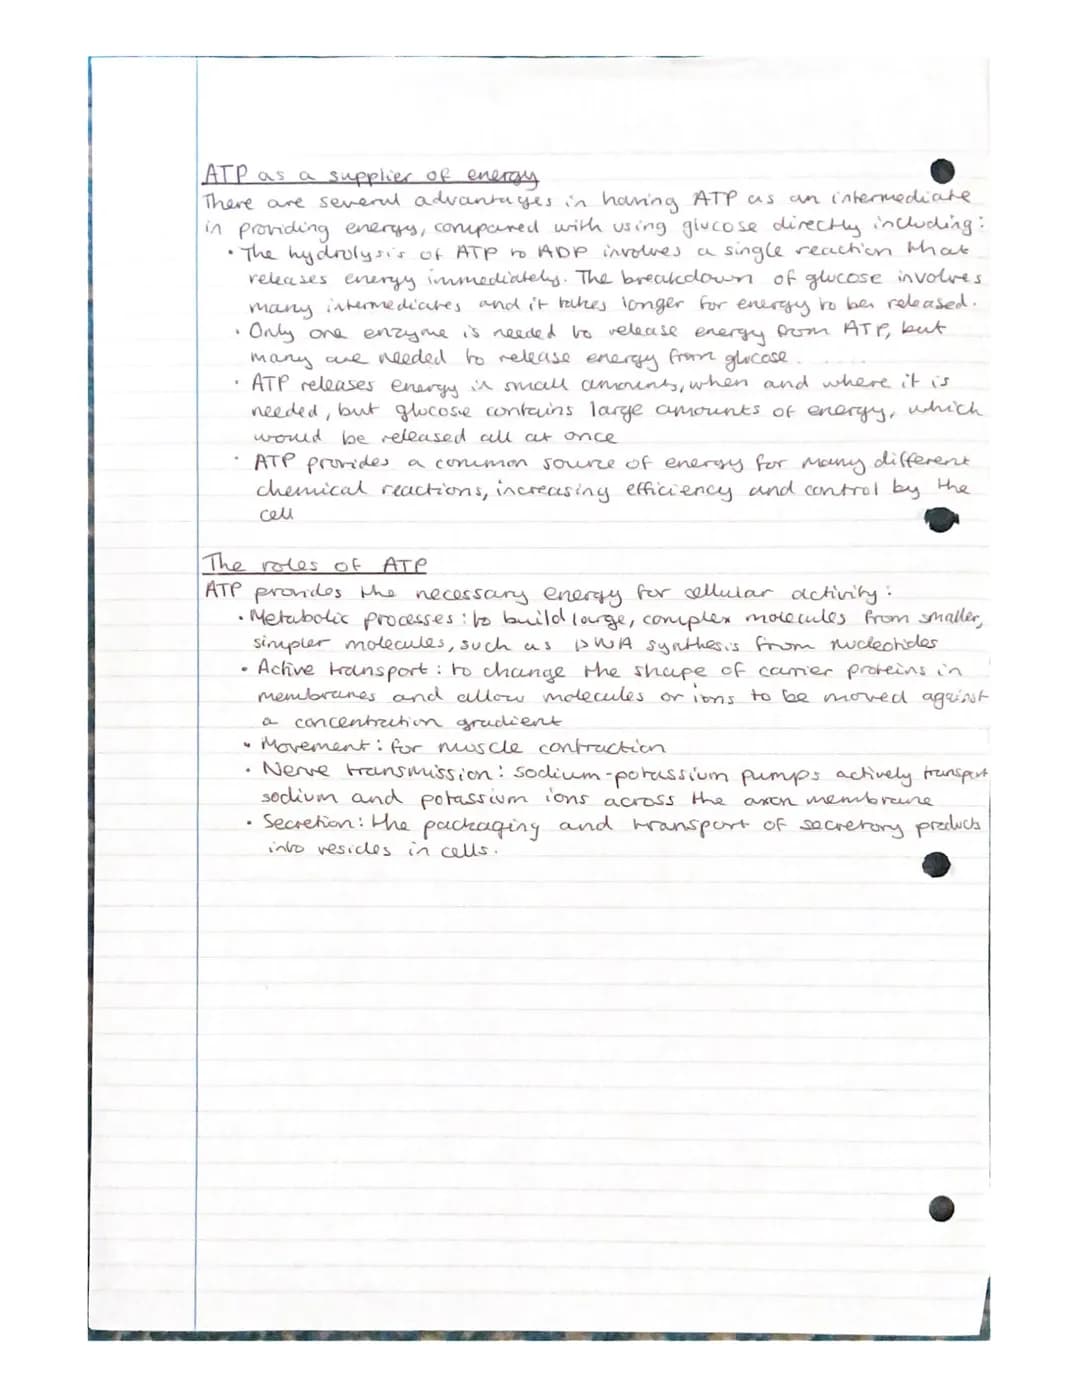 ATP as a supplier of energy
There are several advantages in having ATP as an intermediate
in providing energy, compared with using glucose directly including:
• The hydrolysis of ATP to ADP involves a single reaction that
releases energy immediately. The breakdown of glucose involves
many intermediates and it takes longer for energy to be released.
• Only one enzyme is needed to release energy from ATP, but
many are needed to release energy from glucose.
• ATP releases energy in small amounts, when and where it is
needed, but glucose contains large amounts of energy, which
would be released all at once
• ATP provides a common source of energy for many different
chemical reactions, increasing efficiency and control by the
cell
The roles of ATP
ATP provides the necessary energy for cellular activity:
• Metabolic processes: to build large, complex molecules from smaller,
simpler molecules, such as DNA synthesis from nucleotides
• Active transport: to change the shape of carrier proteins in
membranes and allow molecules or ions to be moved against
a concentration gradient
• Movement: for muscle contraction
• Nerve transmission: sodium-potassium pumps actively transport
sodium and potassium ions across the axon membrane
• Secretion: the packaging and transport of secretory products
into vesicles in cells.